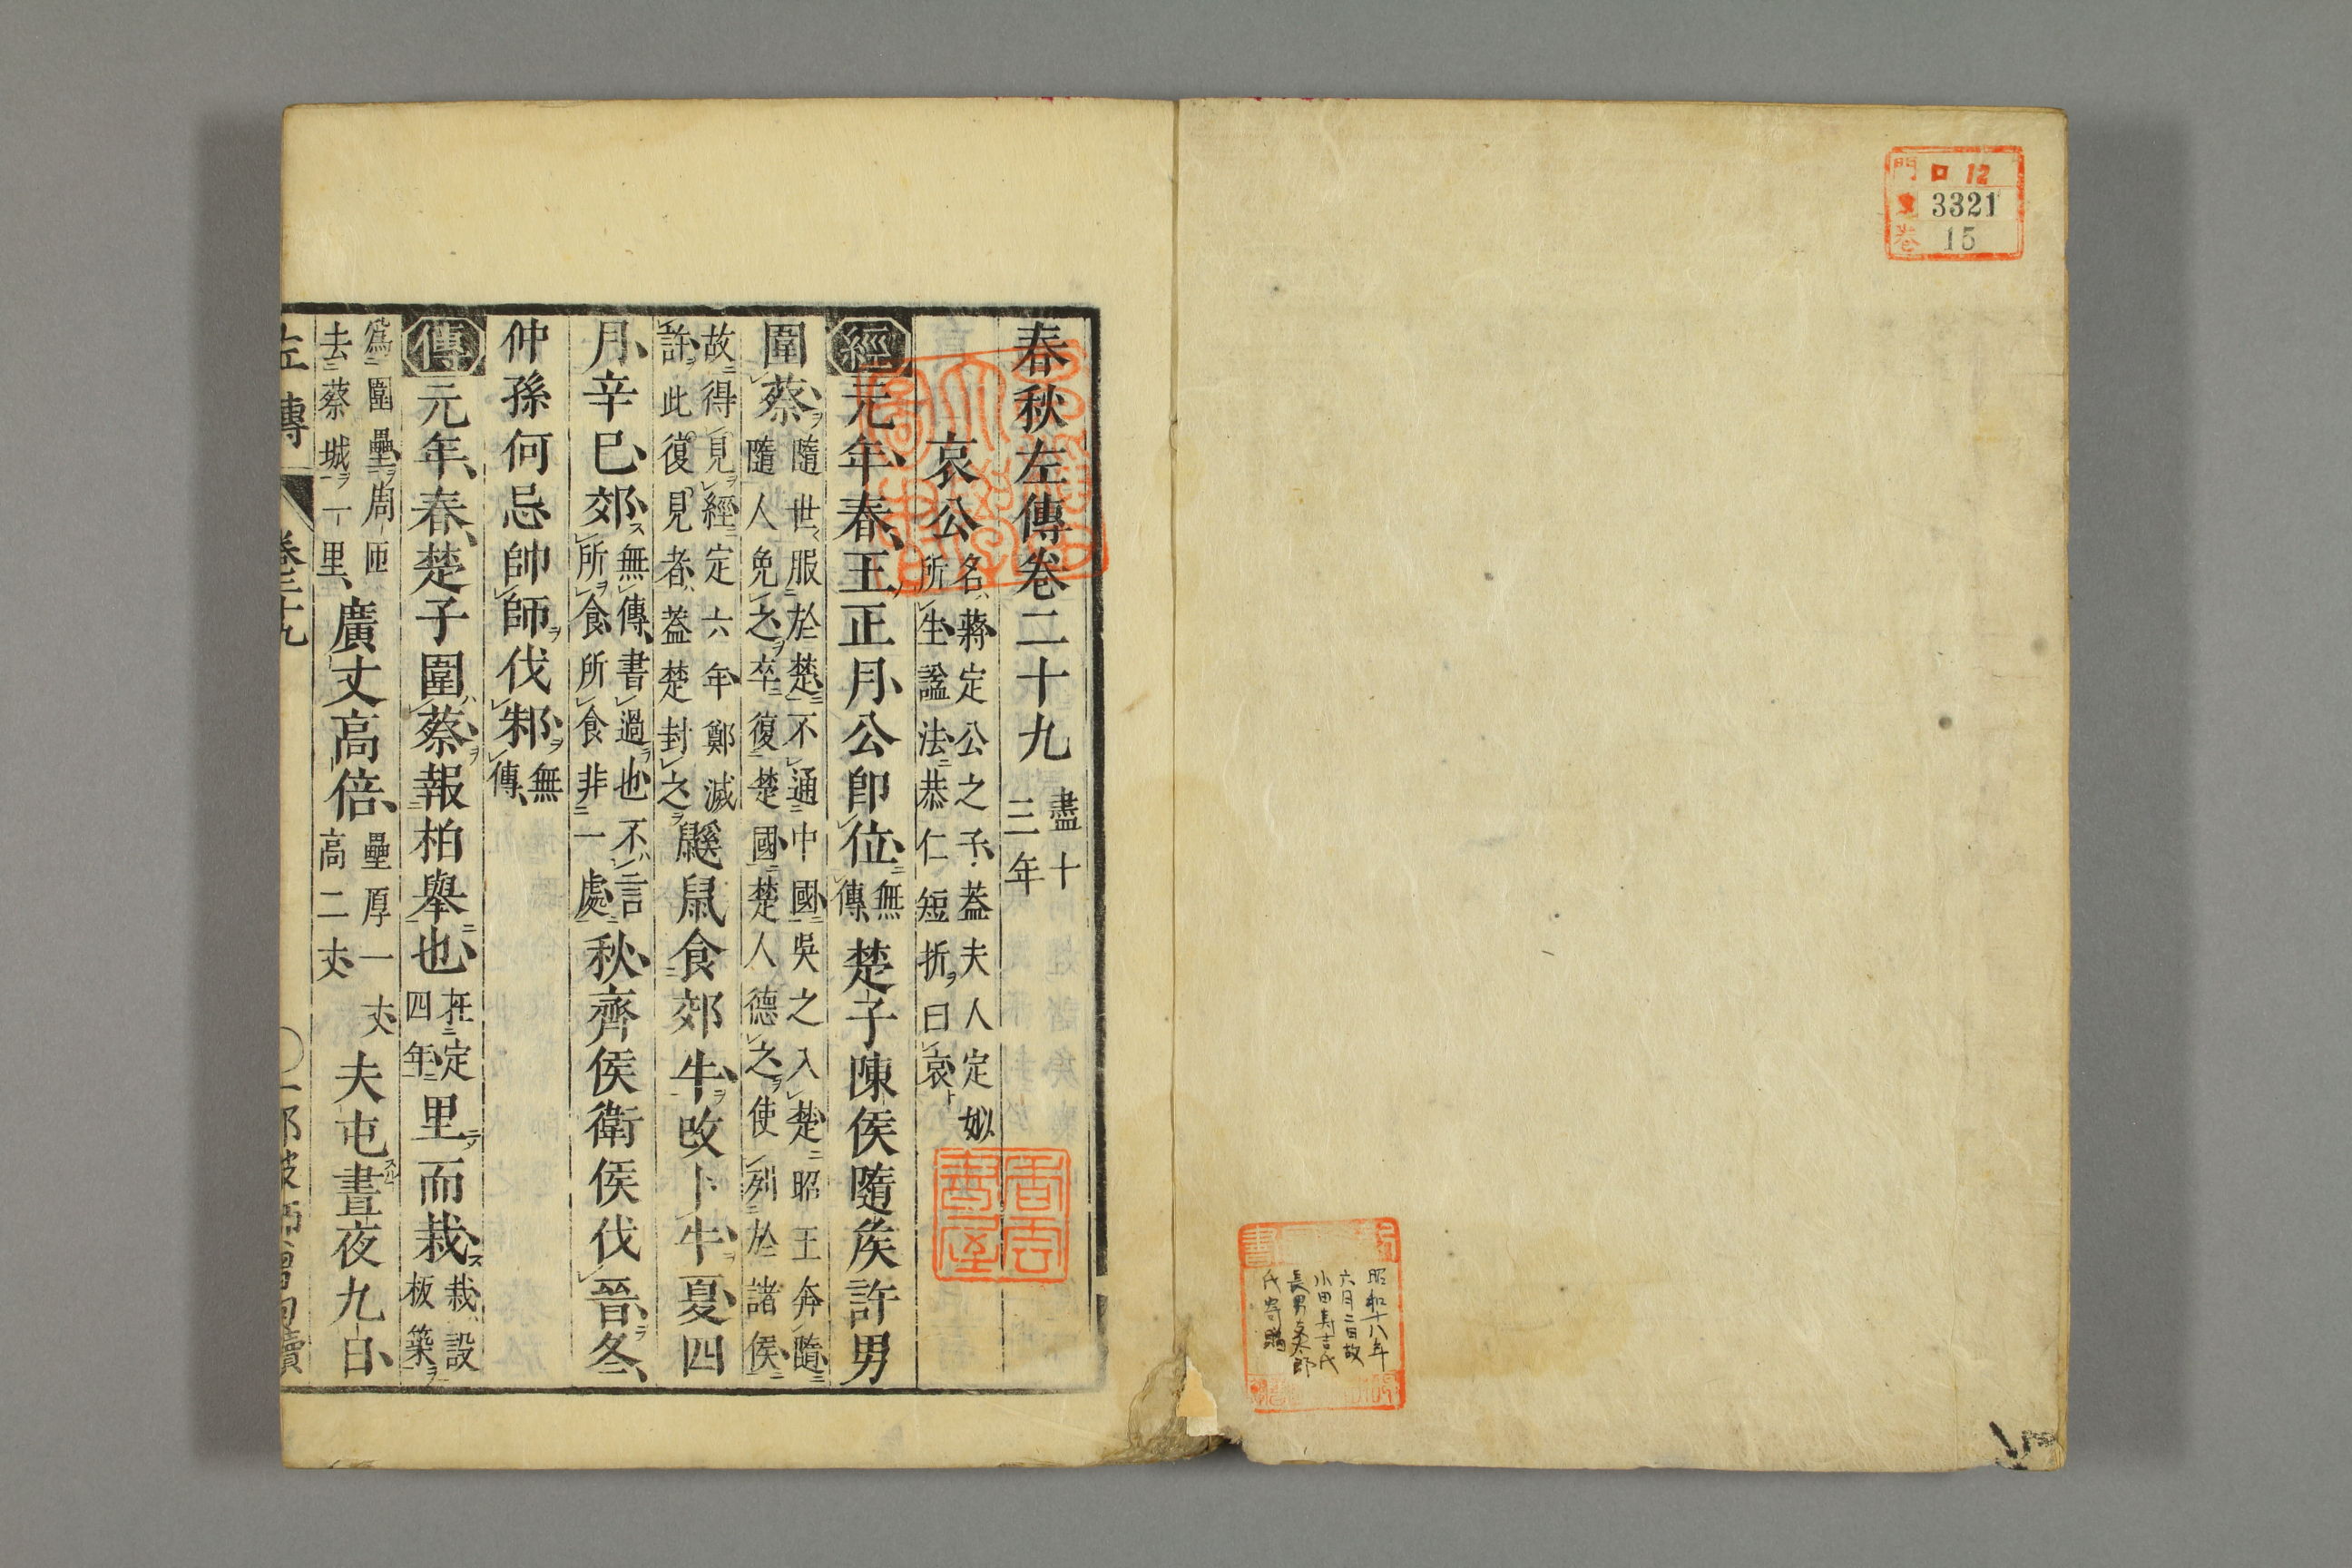 門 ロ 12
3321
卷 15
昭和十八年
六月二日故
小田寿吉氏
長男
氏寄贈
春秋左傳卷二十九 盡十三年
哀公 名蔣定公之子蓋夫人定姒所生諡法恭仁短折曰哀
經元年春王正月公卽位無傳楚子陳侯隨矦許男
圍蔡隨世服於楚不通中國吳之入楚昭王奔隨隨人免之卒復楚國楚人德之使列於諸侯
故得見經定六年鄭滅許此復見者蓋楚封之鼷鼠食郊牛改卜牛夏四
月辛巳郊無傳書過也不言所食所食非一處秋齊侯衛侯伐晉冬
仲孫何忌帥師伐邾無傳
傳元年春楚子圍蔡報柏舉也在定四年里而栽栽設板築
爲圍壘周匝去蔡城一里廣丈高倍壘厚一丈高二丈夫屯晝夜九日
左傳 卷二十九 ○一 那波師曾句讀